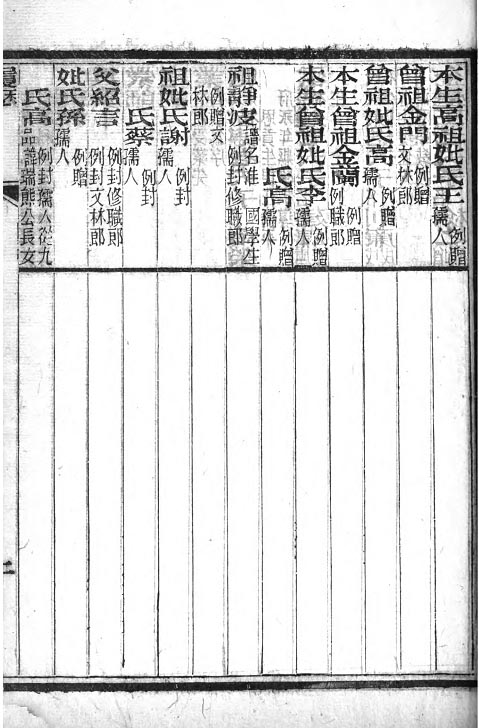 本生高祖妣氏王例贈孺人
曾祖金門例贈文林郎
曾祖妣氏高例贈孺人
本生曾祖金蘭例贈例職郎
本生曾祖妣氏李例贈孺人
氏高例贈孺人
祖靜波譜名淮國學生例封修職郎
例贈文林郎
祖妣氏謝例封孺人
氏蔡例封孺人
父紹言例封修職郎例封文林郎
妣氏孫例贈孺人
氏高例封孺人從九品諱瑞熊公長女